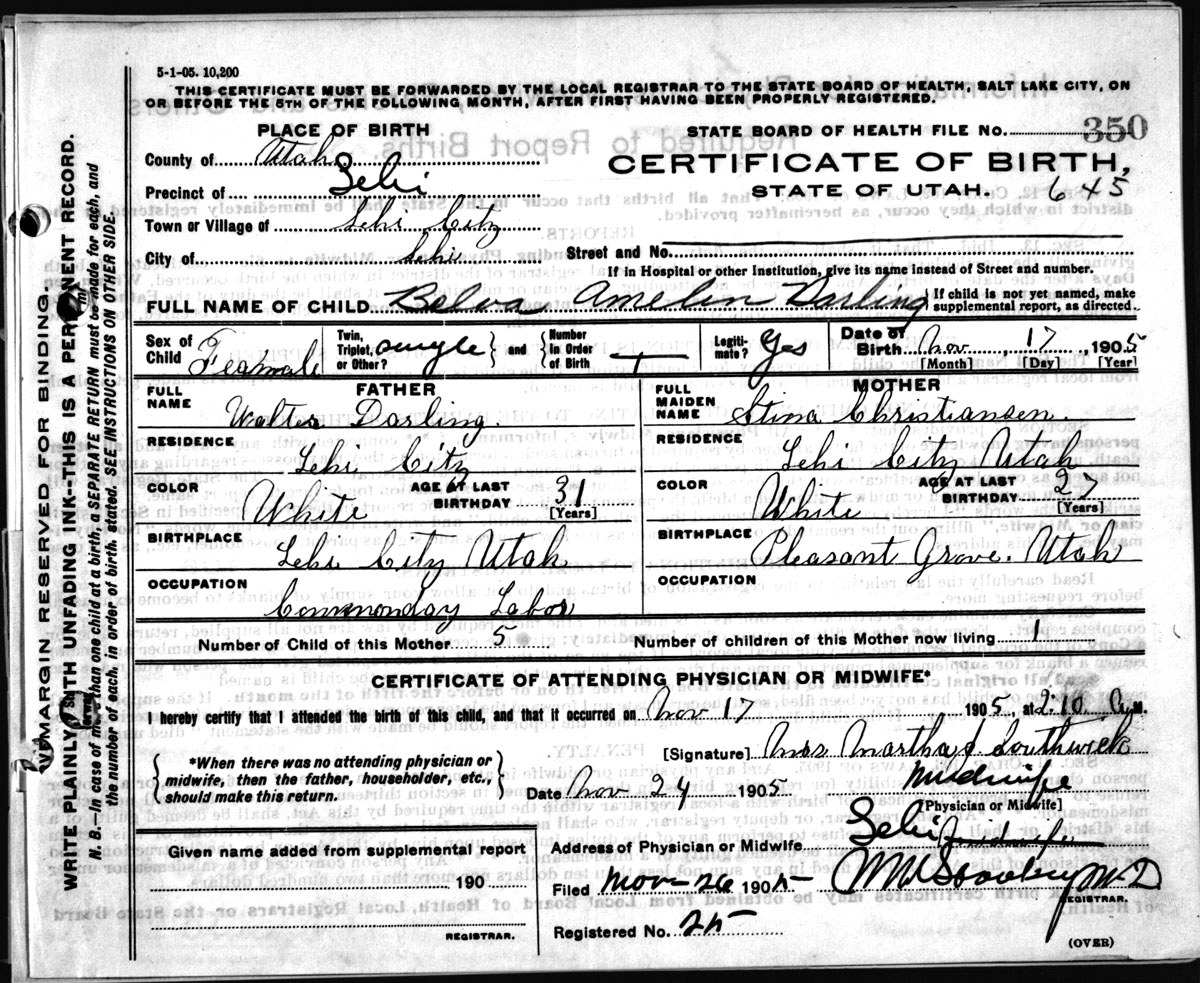 5-1-05. 10,200
THIS CERTIFICATE MUST BE FORWARDED BY THE LOCAL REGISTRAR TO THE STATE BOARD OF HEALTH, SALT LAKE CITY, ON
OR BEFORE THE 5TH OF THE FOLLOWING MONTH, AFTER FIRST HAVING BEEN PROPERLY REGISTERED.
PLACE OF BIRTH
STATE BOARD OF HEALTH FILE No. 350
County of Utah
CERTIFICATE OF BIRTH,
Precinct of Lehi
STATE OF UTAH. 645
Town or Village of Lehi City
City of Lehi
Street and No.
If in Hospital or other Institution, give its name instead of Street and number.
FULL NAME OF CHILD Belva Amelia Darling { If child is not yet named, make supplemental report, as directed.
Sex of Child Feamale Twin, Triplet, or Other? { and } Number in Order of Birth Legitimate? Yes Date of Birth Nov 17 1905
[Month] [Day] [Year]
FATHER
MOTHER
FULL NAME Walter Darling.
FULL MAIDEN NAME Stina Christiansen
RESIDENCE Lehi City
RESIDENCE Lehi City Utah
COLOR White AGE AT LAST BIRTHDAY 31 [Years]
COLOR White AGE AT LAST BIRTHDAY 27 [Years]
BIRTHPLACE Lehi City Utah
BIRTHPLACE Pleasant Grove. Utah
OCCUPATION Commonday Labor
OCCUPATION
Number of Child of this Mother 5 Number of children of this Mother now living 1
CERTIFICATE OF ATTENDING PHYSICIAN OR MIDWIFE*
I hereby certify that I attended the birth of this child, and that it occurred on Nov 17 1905, at 2:10 a.M.
{ *When there was no attending physician or midwife, then the father, householder, etc., should make this return. }
[Signature] Mrs Martha Southwick
Midwife
Date Nov 24 1905.
[Physician or Midwife]
Given name added from supplemental report
190
REGISTRAR.
Address of Physician or Midwife Lehi
Filed Nov 26 1905 M.D
REGISTRAR.
Registered No. 25
(OVER)
MARGIN RESERVED FOR BINDING.
WRITE PLAINLY WITH UNFADING INK--THIS IS A PERMANENT RECORD.
N. B.--In case of more than one child at a birth, a SEPARATE RETURN must be made for each, and
the number of each, in order of birth, stated. SEE INSTRUCTIONS ON OTHER SIDE.